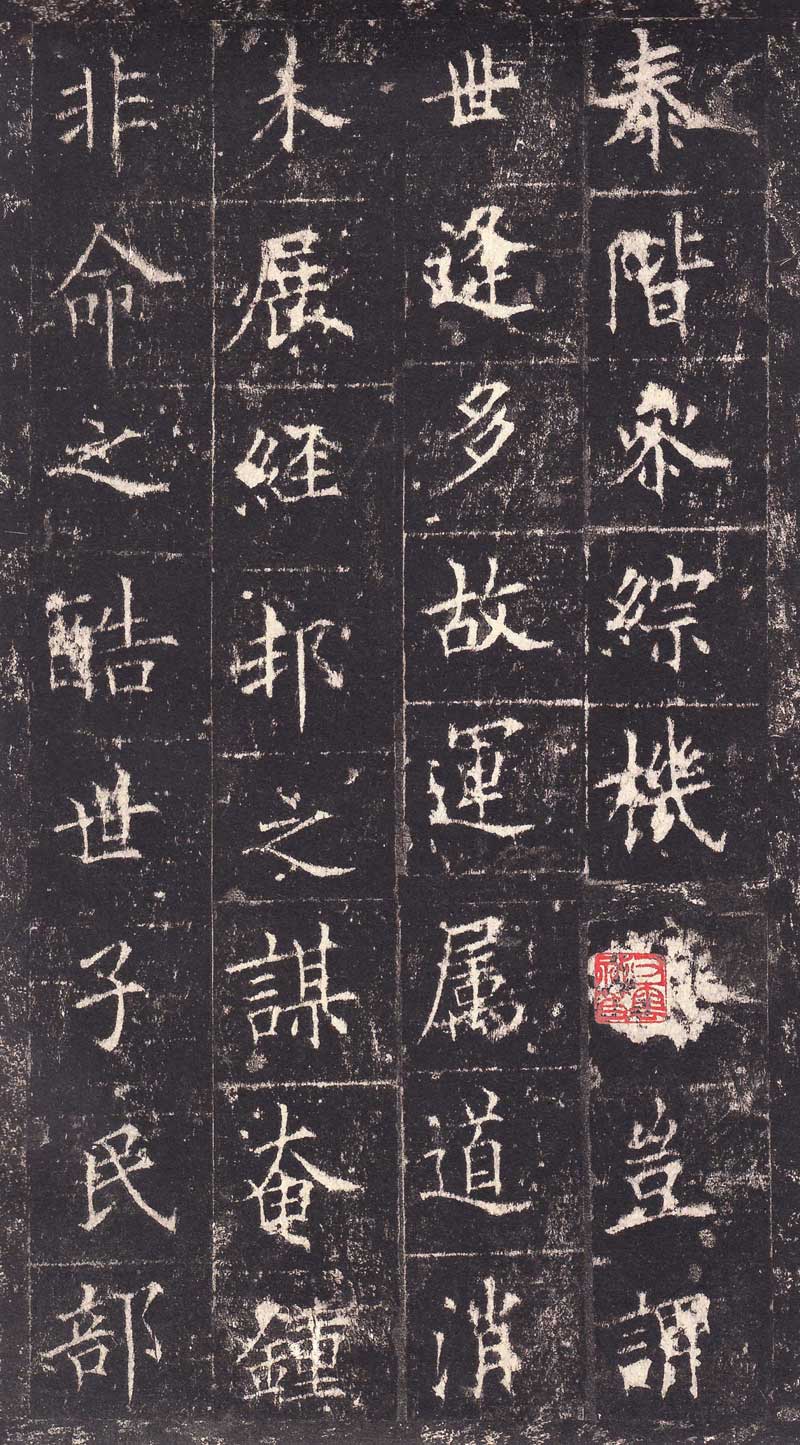 泰階永綜機豈謂
世逢多故運属道消
未展經邦之謀奄鍾
非命之酷世子民部